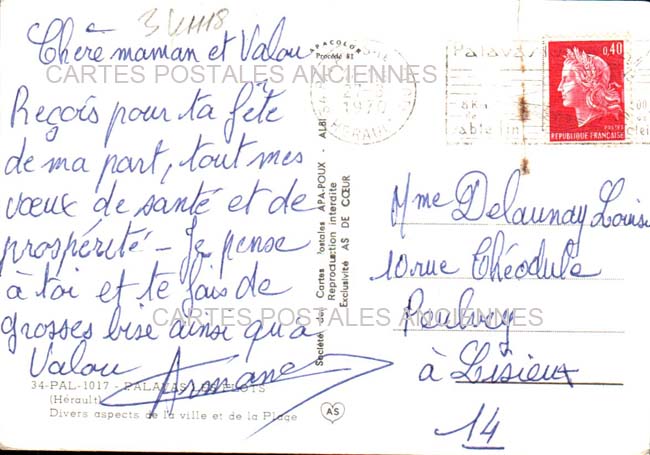 3 VIII 18
Chère maman et Valou
Reçois pour ta fête
de ma part, tout mes
vœux de santé et de
prospérité - Je pense
à toi et te fais de
grosses bise ainsi qu'a
Valou Armane
34-PAL-1017 - PALAVAS LES FLOTS
(Hérault)
Divers aspects de la ville et de la Plage
CARTES POSTALES ANCIENNES
CARTES POSTALES ANCIENNES
APACOLOR
Procédé RI
Société des Cartes Postales APA-POUX - ALBI
Reproduction interdite
Exclusivité AS DE CŒUR
AS
1970
HERAULT
Palavas
sable fin
0,40
REPUBLIQUE FRANÇAISE
Mme Delaunay Louise
10 rue Théodule
à Lisieux
14